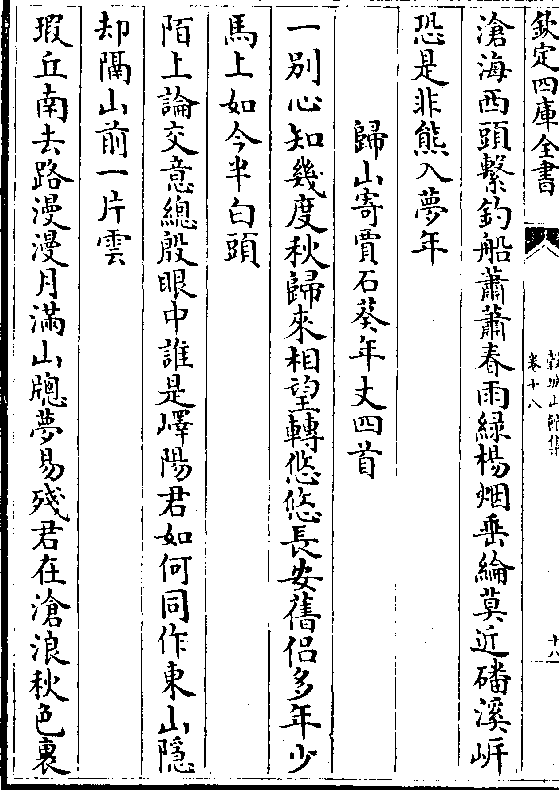 欽定四庫全書
卷十八
十八
滄海西頭繫釣船蕭蕭春雨緑楊烟垂綸莫近磻溪岸
恐是非熊入夢年
歸山寄賈石葵年丈四首
一别心知幾度秋歸來相望轉悠悠長安舊侣多年少
馬上如今半白頭
陌上論交意總殷眼中誰是嶧陽君如何同作東山隠
却隔山前一片雲
瑕丘南去路漫漫月滿山牕夢易殘君在滄浪秋色裏